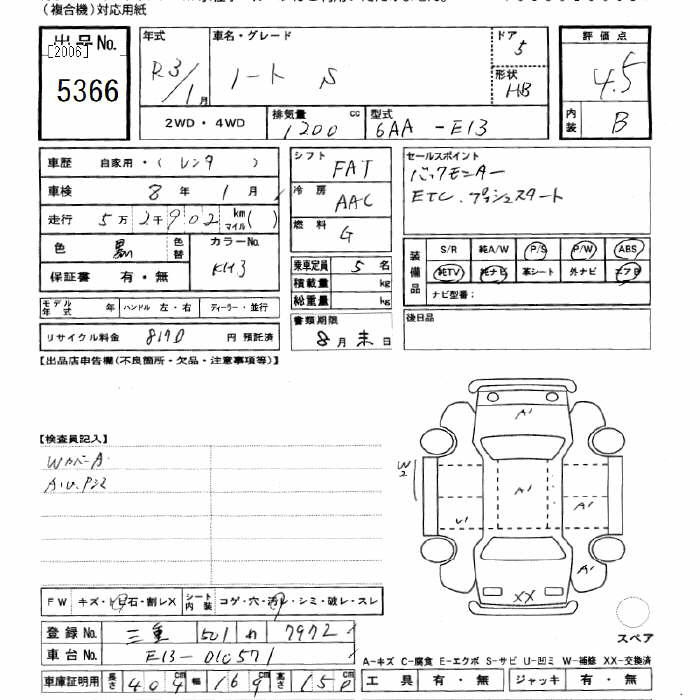 (複合機)対応用紙
出品No.
[2006]
5366
年式
R3/1月
車名・グレード
ノート S
ドア
5
形状
HB
評価点
4.5
内装
B
2WD・4WD
排気量
1200 cc
型式
6AA-E13
車歴 自家用・( レンタ )
車検 8年 1月
走行 5万2千902 km マイル( )
色 黒 色替
カラーNo.
KH3
保証書 有・無
モデル年式 年 ハンドル 左・右 ディーラー・並行
リサイクル料金 8190 円 預託済
シフト FAT
冷房 AAC
燃料 G
乗車定員 5 名
積載量 kg
総重量 kg
書類期限
8月末日
セールスポイント
バックモニター
ETC.プッシュスタート
装備品
S/R 純A/W P/S P/W ABS
純TV 純ナビ 革シート 外ナビ エアB
ナビ型番:
後日品
【出品店申告欄(不良箇所・欠品・注意事項等)】
【検査員記入】
Wカバー A
A.U.Pシミ
A1
W2
A1
A1
U1
A1
XX
スペア
FW キズ・飛石・割レX
シート内装 コゲ・穴・汚レ・シミ・破レ・スレ
登録No. 三重 501 わ 7972
車台No. E13-010571
車庫証明用 長さ 404 cm 幅 169 cm 高さ 150 cm
A-キズ C-腐食 E-エクボ S-サビ U-凹ミ W-補修 XX-交換済
工具 有・無 ジャッキ 有・無